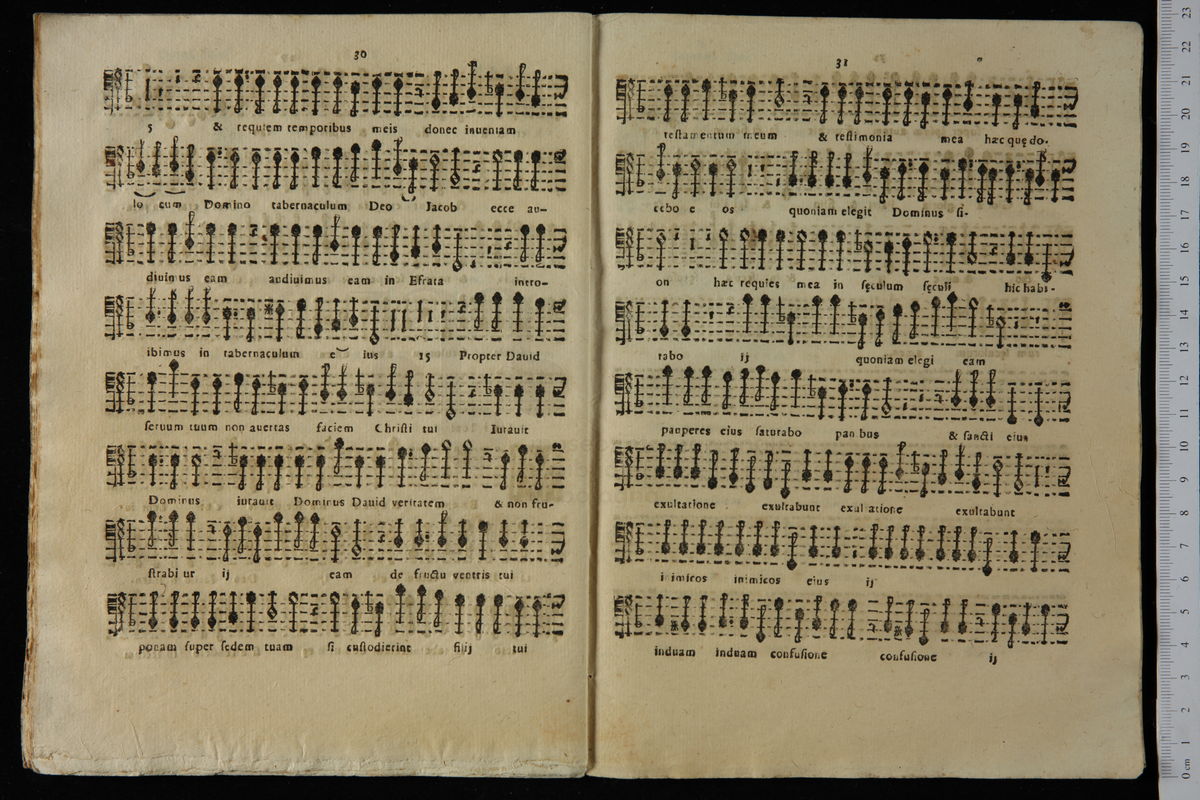 30
5 & requiem temporibus meis donec inueniam
lo cum Domino tabernaculum Deo Jacob ecce au-
diuimus eam audiuimus eam in Efrata intro-
ibimus in tabernaculum e ius 15 Propter Dauid
seruum tuum non auertas faciem Christi tui Iurauit
Dominus iurauit Dominus Dauid veritatem & non fru-
strabi ur ij eam de fructu ventris tui
ponam super sedem tuam si custodierint filij tui
31
testamentum meum & testimonia mea hæc quę do-
cebo e os quoniam elegit Dominus si-
on hæc requies mea in sęculum sęculi hic habi-
tabo ij quoniam elegi eam
pauperes eius saturabo pan bus & sancti eius
exultatione exultabunt exul atione exultabunt
inimicos inimicos eius ij
induam induam confusione confusione ij
23
22
21
20
19
18
17
16
15
14
13
12
11
10
9
8
7
6
5
4
3
2
1
0 cm